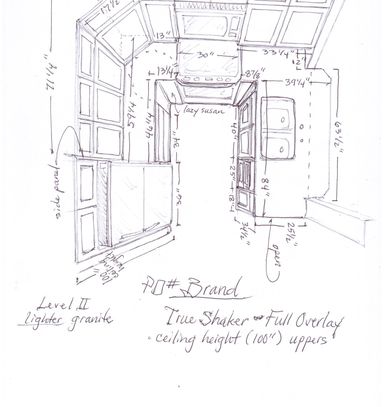 17½"
13"
30"
33¼"
12"
13¼"
8⅞"
39¼"
lazy susan
71¼"
59¼"
46¼"
34"
40"
63½"
side panel
36"
25½"
84"
18"
34½"
25½"
open
100"
ceiling
height
PO# Brand
Level II
lighter granite
True Shaker - Full Overlay
· ceiling height (100") uppers